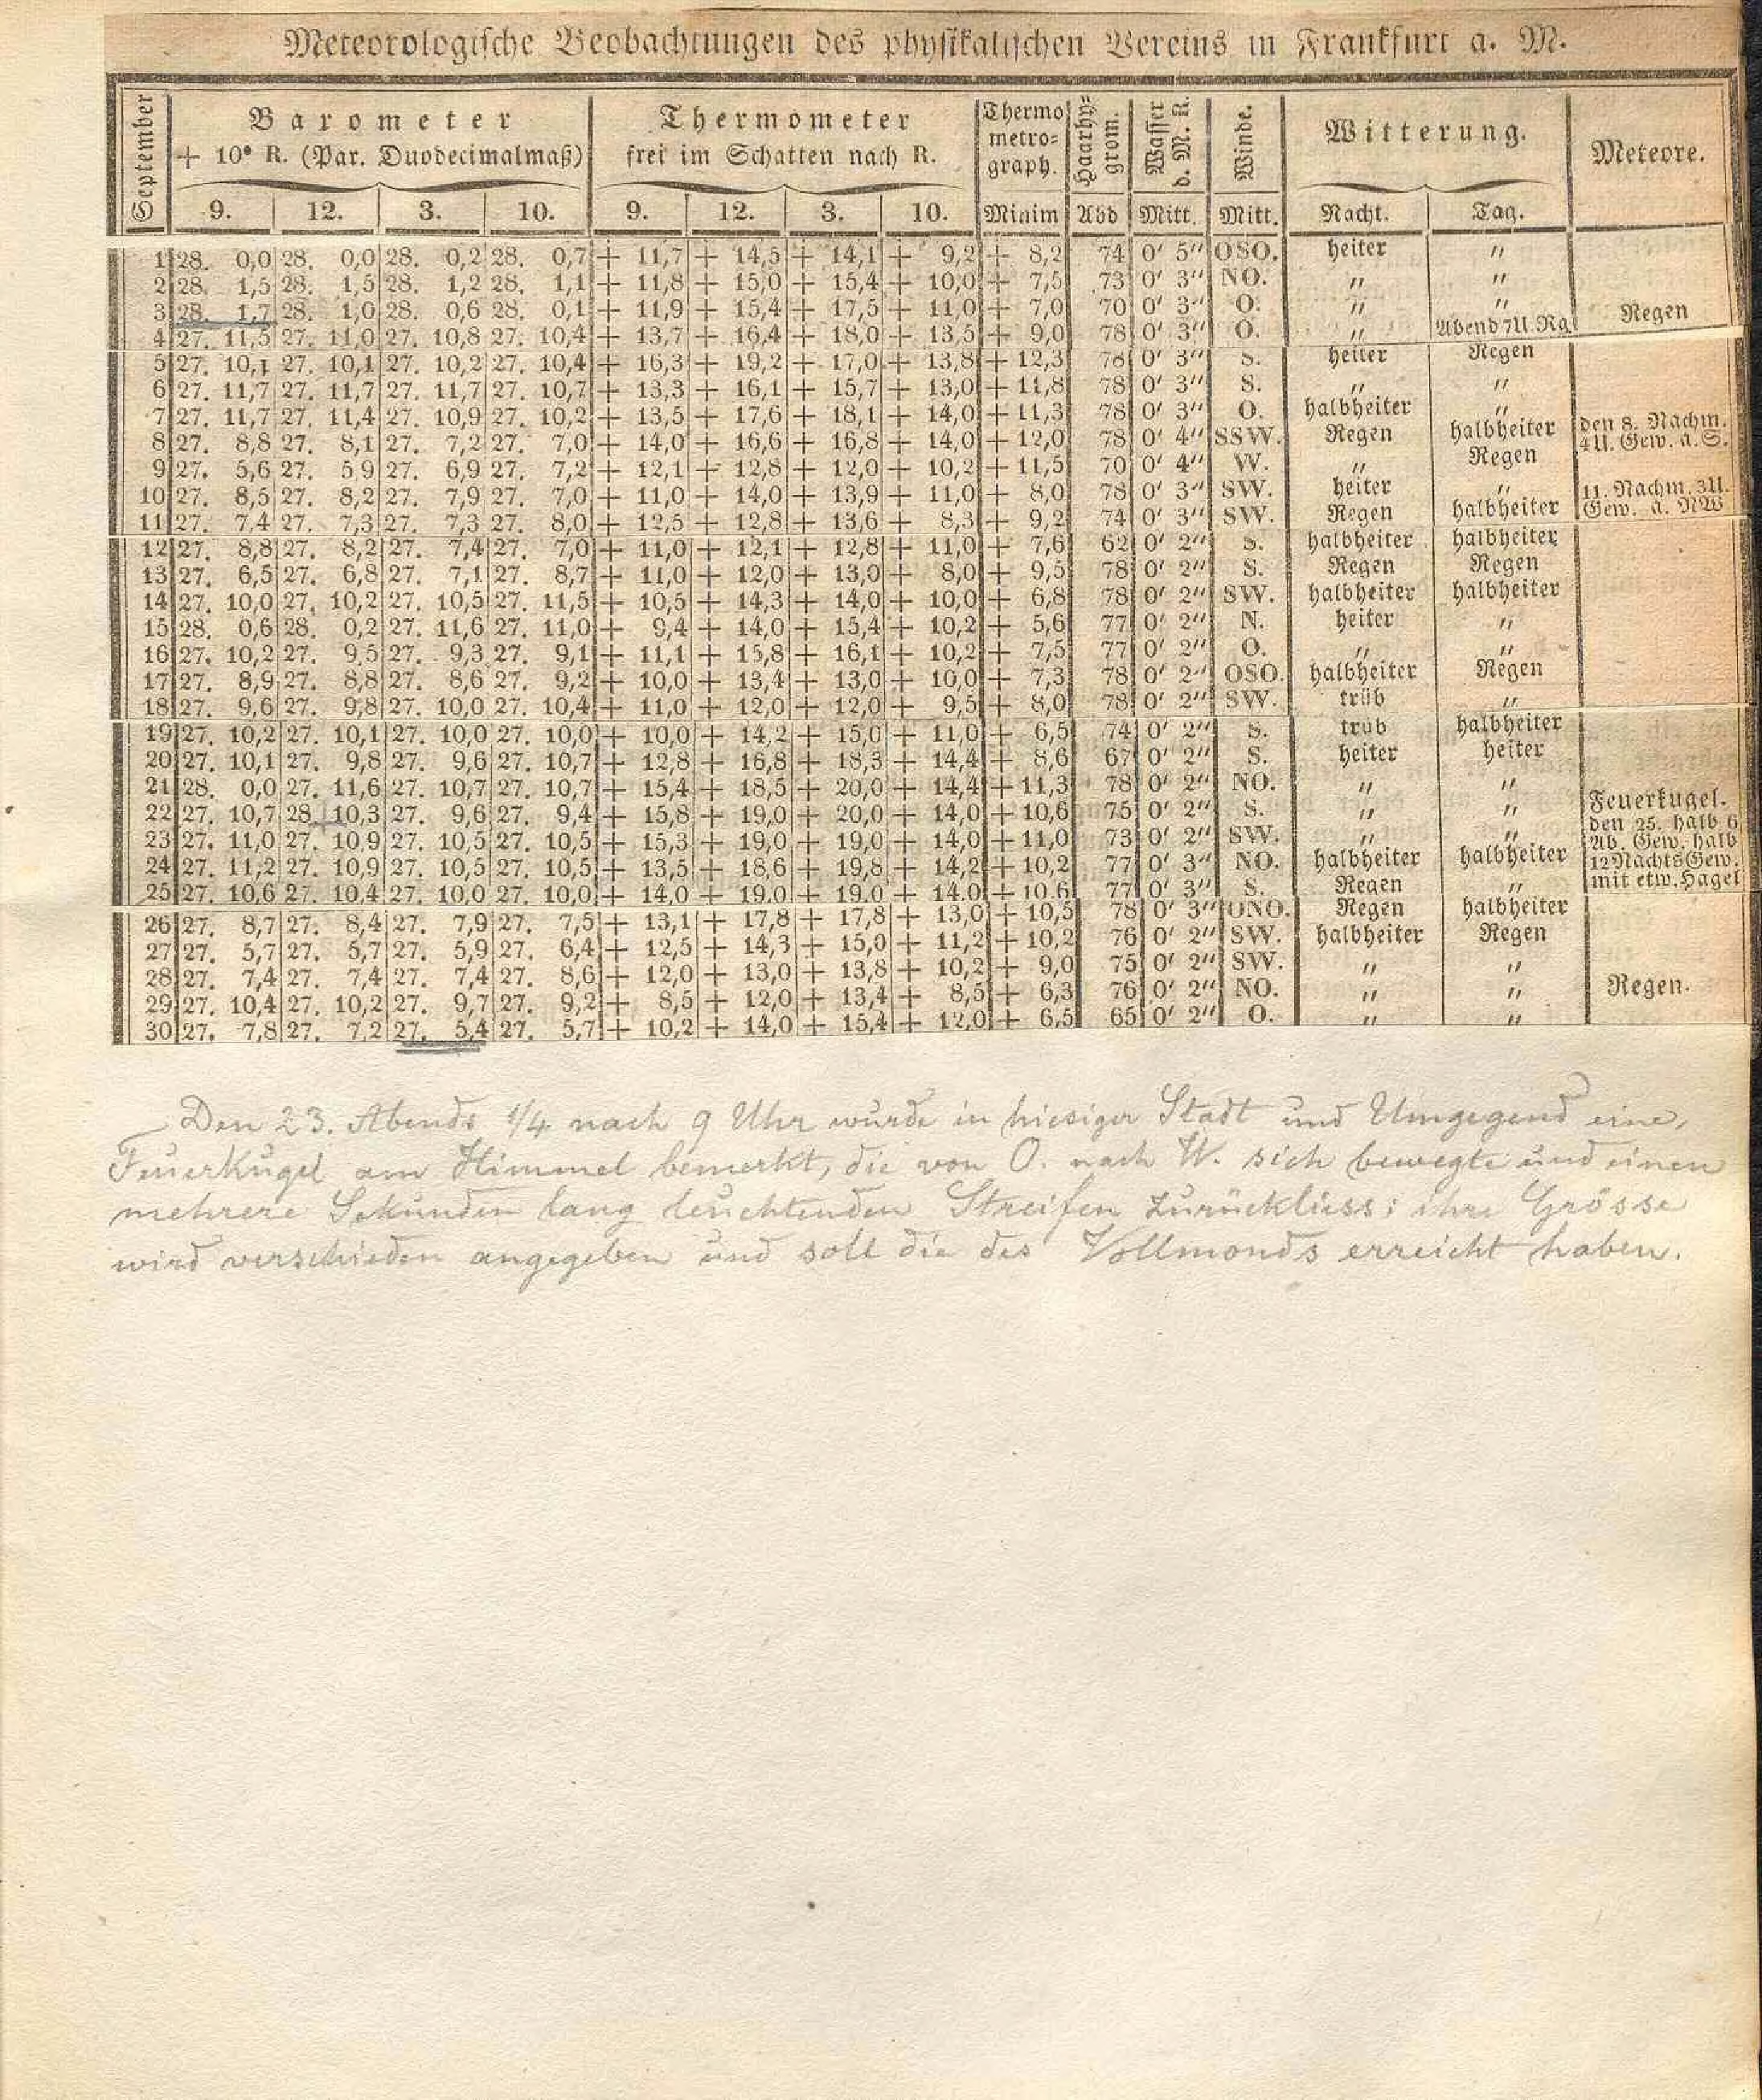 Meteorologische Beobachtungen des physikalischen Vereins in Frankfurt a. M.
September Barometer Thermometer Thermo Haarhy= Wasser Winde. Witterung. Meteore.
+ 10° R. (Par. Duodecimalmaß) frei im Schatten nach R. metro= grom. d. M. R.
graph.
9. 12. 3. 10. 9. 12. 3. 10. Minim Abd Mitt. Mitt. Nacht. Tag.
1 28. 0,0 28. 0,0 28. 0,2 28. 0,7 + 11,7 + 14,5 + 14,1 + 9,2 + 8,2 74 0' 5" OSO. heiter "
2 28. 1,5 28. 1,5 28. 1,2 28. 1,1 + 11,8 + 15,0 + 15,4 + 10,0 + 7,5 73 0' 3" NO. " "
3 28. 1,7 28. 1,0 28. 0,6 28. 0,1 + 11,9 + 15,4 + 17,5 + 11,0 + 7,0 70 0' 3" O. " " Regen
4 27. 11,5 27. 11,0 27. 10,8 27. 10,4 + 13,7 + 16,4 + 18,0 + 13,5 + 9,0 78 0' 3" O. " Abend 7U. Rg.
5 27. 10,1 27. 10,1 27. 10,2 27. 10,4 + 16,3 + 19,2 + 17,0 + 13,8 + 12,3 78 0' 3" S. heiter Regen
6 27. 11,7 27. 11,7 27. 11,7 27. 10,7 + 13,3 + 16,1 + 15,7 + 13,0 + 11,8 78 0' 3" S. " "
7 27. 11,7 27. 11,4 27. 10,9 27. 10,2 + 13,5 + 17,6 + 18,1 + 14,0 + 11,3 78 0' 3" O. halbheiter " den 8. Nachm.
8 27. 8,8 27. 8,1 27. 7,2 27. 7,0 + 14,0 + 16,6 + 16,8 + 14,0 + 12,0 78 0' 4" SSW. Regen halbheiter 4U. Gew. a. S.
9 27. 5,6 27. 5 9 27. 6,9 27. 7,2 + 12,1 + 12,8 + 12,0 + 10,2 + 11,5 70 0' 4" W. " Regen
10 27. 8,5 27. 8,2 27. 7,9 27. 7,0 + 11,0 + 14,0 + 13,9 + 11,0 + 8,0 78 0' 3" SW. heiter " 11. Nachm. 3U.
11 27. 7,4 27. 7,3 27. 7,3 27. 8,0 + 12,5 + 12,8 + 13,6 + 8,3 + 9,2 74 0' 3" SW. Regen halbheiter Gew. a. NW
12 27. 8,8 27. 8,2 27. 7,4 27. 7,0 + 11,0 + 12,1 + 12,8 + 11,0 + 7,6 62 0' 2" S. halbheiter halbheiter
13 27. 6,5 27. 6,8 27. 7,1 27. 8,7 + 11,0 + 12,0 + 13,0 + 8,0 + 9,5 78 0' 2" S. Regen Regen
14 27. 10,0 27. 10,2 27. 10,5 27. 11,5 + 10,5 + 14,3 + 14,0 + 10,0 + 6,8 78 0' 2" SW. halbheiter halbheiter
15 28. 0,6 28. 0,2 27. 11,6 27. 11,0 + 9,4 + 14,0 + 15,4 + 10,2 + 5,6 77 0' 2" N. heiter "
16 27. 10,2 27. 9,5 27. 9,3 27. 9,1 + 11,1 + 15,8 + 16,1 + 10,2 + 7,5 77 0' 2" O. " "
17 27. 8,9 27. 8,8 27. 8,6 27. 9,2 + 10,0 + 13,4 + 13,0 + 10,0 + 7,3 78 0' 2" OSO. halbheiter Regen
18 27. 9,6 27. 9,8 27. 10,0 27. 10,4 + 11,0 + 12,0 + 12,0 + 9,5 + 8,0 78 0' 2" SW. trüb "
19 27. 10,2 27. 10,1 27. 10,0 27. 10,0 + 10,0 + 14,2 + 15,0 + 11,0 + 6,5 74 0' 2" S. trüb halbheiter
20 27. 10,1 27. 9,8 27. 9,6 27. 10,7 + 12,8 + 16,8 + 18,3 + 14,4 + 8,6 67 0' 2" S. heiter heiter
21 28. 0,0 27. 11,6 27. 10,7 27. 10,7 + 15,4 + 18,5 + 20,0 + 14,4 + 11,3 78 0' 2" NO. " "
22 27. 10,7 28 10,3 27. 9,6 27. 9,4 + 15,8 + 19,0 + 20,0 + 14,0 + 10,6 75 0' 2" S. " " Feuerkugel.
23 27. 11,0 27. 10,9 27. 10,5 27. 10,5 + 15,3 + 19,0 + 19,0 + 14,0 + 11,0 73 0' 2" SW. " " den 25. halb 6
Ab. Gew. halb
24 27. 11,2 27. 10,9 27. 10,5 27. 10,5 + 13,5 + 18,6 + 19,8 + 14,2 + 10,2 77 0' 3" NO. halbheiter halbheiter 12 Nachts Gew.
25 27. 10,6 27. 10,4 27. 10,0 27. 10,0 + 14,0 + 19,0 + 19,0 + 14,0 + 10,6 77 0' 3" S. Regen " mit etw. Hagel
26 27. 8,7 27. 8,4 27. 7,9 27. 7,5 + 13,1 + 17,8 + 17,8 + 13,0 + 10,5 78 0' 3" ONO. Regen halbheiter
27 27. 5,7 27. 5,7 27. 5,9 27. 6,4 + 12,5 + 14,3 + 15,0 + 11,2 + 10,2 76 0' 2" SW. halbheiter Regen
28 27. 7,4 27. 7,4 27. 7,4 27. 8,6 + 12,0 + 13,0 + 13,8 + 10,2 + 9,0 75 0' 2" SW. " "
29 27. 10,4 27. 10,2 27. 9,7 27. 9,2 + 8,5 + 12,0 + 13,4 + 8,5 + 6,3 76 0' 2" NO. " " Regen.
30 27. 7,8 27. 7,2 27. 5,4 27. 5,7 + 10,2 + 14,0 + 15,4 + 12,0 + 6,5 65 0' 2" O. " "
Den 23. Abends 1/4 nach 9 Uhr wurde in hiesiger Stadt und Umgegend eine,
Feuerkugel am Himmel bemerkt, die von O. nach W. sich bewegte und einen
mehrere Sekunden lang leuchtenden Streifen zurückliess; ihre Grösse
wird verschieden angegeben und soll die des Vollmonds erreicht haben.